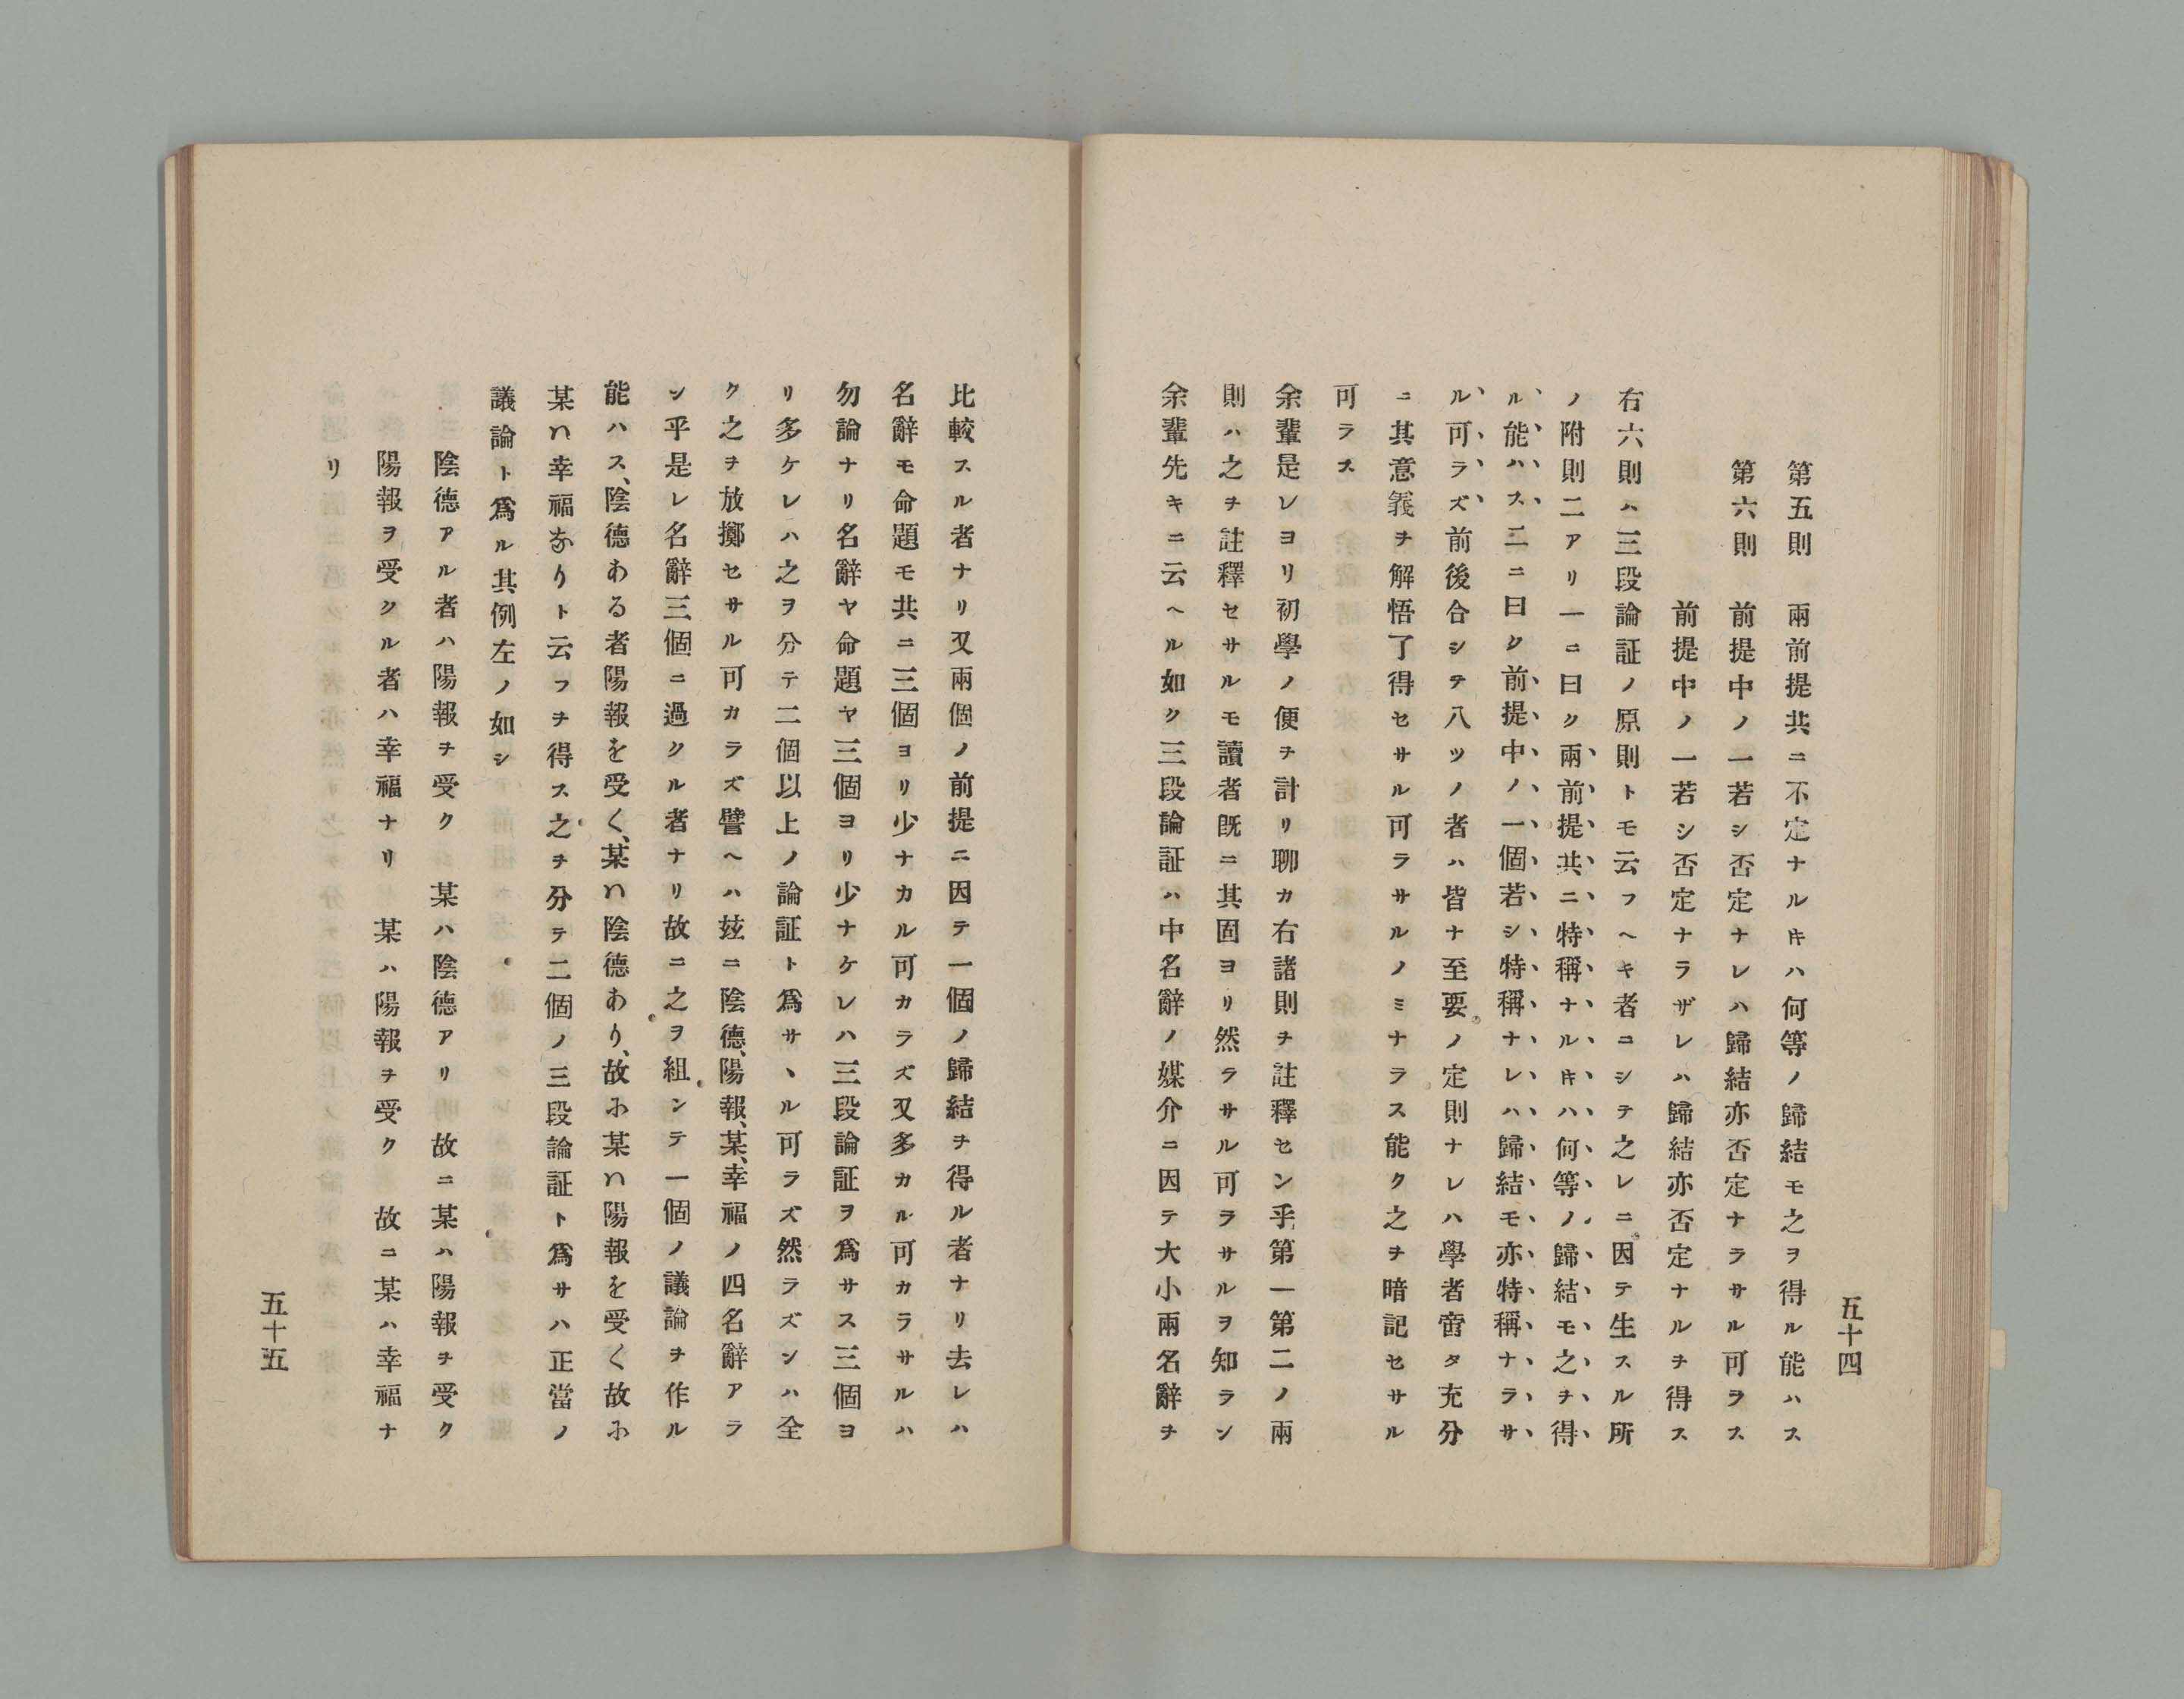 五十四
第五則　兩前提共ニ不定ナルキハ何等ノ歸結モ之ヲ得ル能ハス
第六則　前提中ノ一若シ否定ナレハ歸結亦否定ナラサル可ラス
前提中ノ一若シ否定ナラザレハ歸結亦否定ナルヲ得ス
右六則ハ三段論証ノ原則トモ云フヘキ者ニシテ之レニ因テ生スル所
ノ附則二アリ一ニ曰ク兩前提共ニ特稱ナルキハ何等ノ歸結モ之ヲ得
ル能ハス二ニ曰ク前提中ノ一個若シ特稱ナレハ歸結モ亦特稱ナラサ
ル可ラズ前後合シテ八ツノ者ハ皆ナ至要ノ定則ナレハ學者啻タ充分
ニ其意義ヲ解悟了得セサル可ラサルノミナラス能ク之ヲ暗記セサル
可ラス
余輩是レヨリ初學ノ便ヲ計リ聊カ右諸則ヲ註釋セン乎第一第二ノ兩
則ハ之ヲ註釋セサルモ讀者既ニ其固ヨリ然ラサル可ラサルヲ知ラン
余輩先キニ云ヘル如ク三段論証ハ中名辭ノ媒介ニ因テ大小兩名辭ヲ
比較スル者ナリ又兩個ノ前提ニ因テ一個ノ歸結ヲ得ル者ナリ去レハ
名辭モ命題モ共ニ三個ヨリ少ナカル可カラズ又多カル可カラサルハ
勿論ナリ名辭ヤ命題ヤ三個ヨリ少ナケレハ三段論証ヲ爲サス三個ヨ
リ多ケレハ之ヲ分テ二個以上ノ論証ト爲サヽル可ラズ然ラズンハ全
ク之ヲ放擲セサル可カラズ譬ヘハ玆ニ陰德、陽報、某、幸福ノ四名辭アラ
ン乎是レ名辭三個ニ過クル者ナリ故ニ之ヲ組ンテ一個ノ議論ヲ作ル
能ハス、陰德ある者陽報を受く、某ハ陰德あり、故に某ハ陽報を受く故に
某ハ幸福なりト云フヲ得ス之ヲ分テ二個ノ三段論証ト爲サハ正當ノ
議論ト爲ル其例左ノ如シ
陰德アル者ハ陽報ヲ受ク　某ハ陰德アリ　故ニ某ハ陽報ヲ受ク
陽報ヲ受クル者ハ幸福ナリ　某ハ陽報ヲ受ク　故ニ某ハ幸福ナ
リ
五十五